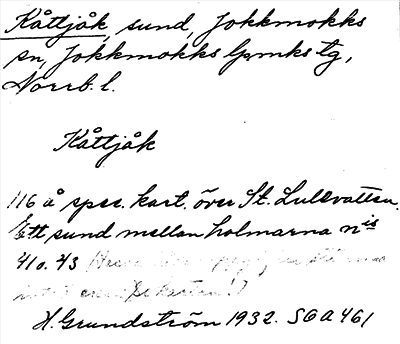 Kåttjåk, sund, Jokkmokks
sn, Jokkmokks lpmks tg,
Norrb. l.
Kåttjåk
116 å spec. kart. över St. Lulevatten.
Ett sund mellan holmarna nis
41 o. 43
H. Grundström 1932. SOA 461